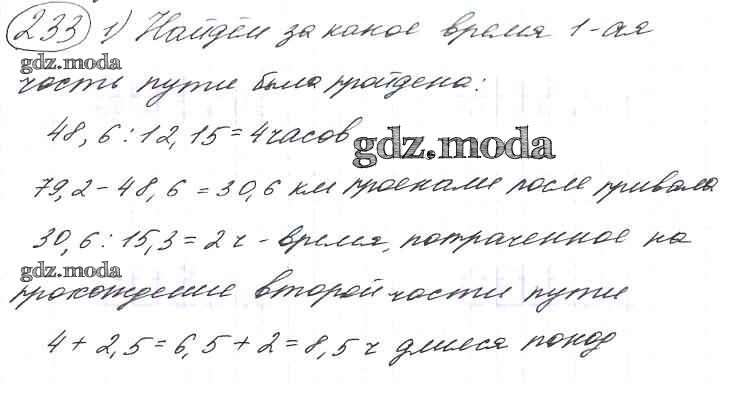 233 1) Найдём за какое время 1-ая
gdz.moda
часть пути была пройдена:
48,6 : 12,15 = 4 часов
gdz.moda
79,2 - 48,6 = 30,6 км проехали после привала
30,6 : 15,3 = 2 ч - время, потраченное на
gdz.moda
прохождение второй части пути
4 + 2,5 = 6,5 + 2 = 8,5 ч длился поход